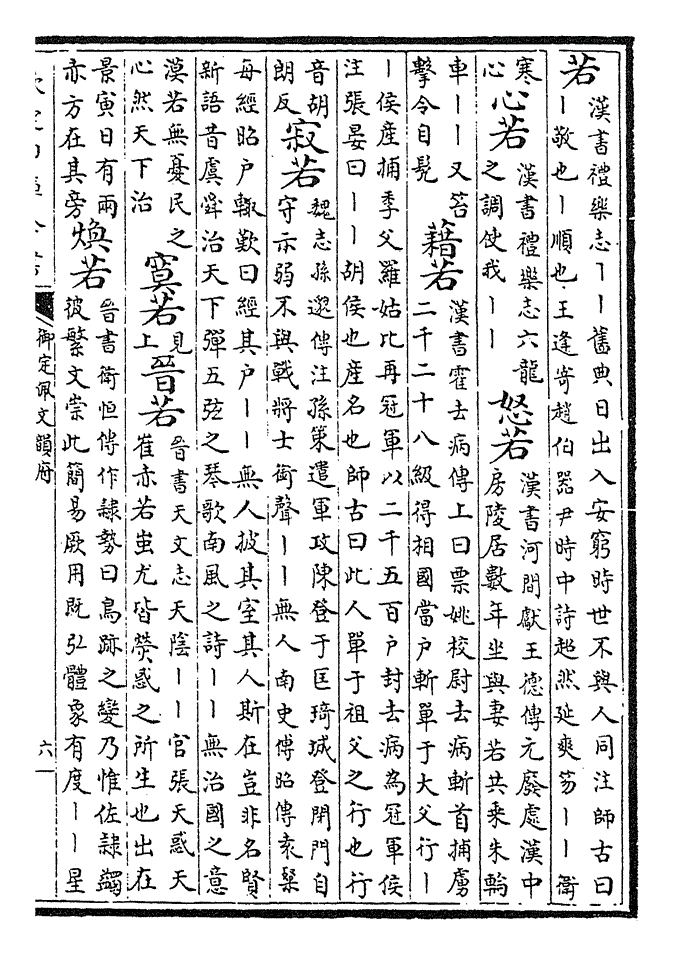 若漢書禮樂志丨丨舊典日出入安窮時世不與人同注師古曰
丨敬也丨順也王逢寄趙伯器尹時中詩超然延爽笏丨丨衛
寒
心
心若漢書禮樂志六龍
之調使我丨丨
怒若漢書河間獻王德傳元廢處漢中
房陵居數年坐與妻若共乘朱輪
車丨丨又笞
擊令自髡
藉若漢書霍去病傳上曰票姚校尉去病斬首捕虜
二千二十八級得相國當戶斬單于大父行丨
丨侯產捕季父羅姑比再冠軍以二千五百戶封去病為冠軍侯
注張晏曰丨丨胡侯也產名也師古曰此人單于祖父之行也行
音胡
朗反
寂若魏志孫邈傳注孫策遣軍攻陳登于匡琦城登閉門自
守示弱不與戰將士銜聲丨丨無人南史傅昭傳袁粲
每經昭户輒歎曰經其户丨丨無人披其室其人斯在豈非名賢
新語昔虞舜治天下彈五弦之琴歌南風之詩丨丨無治國之意
漠若無憂民之
心然天下治
寞若見
上
晉若晉書天文志天陰丨丨官張天惑天
崔亦若蚩尤皆熒惑之所生也出在
景寅日有兩
赤方在其旁
煥若晉書衛恒傳作隸勢曰鳥跡之變乃惟佐隸蠲
彼繁文崇此簡易厥用既弘體象有度丨丨星
御定佩文韻府
六